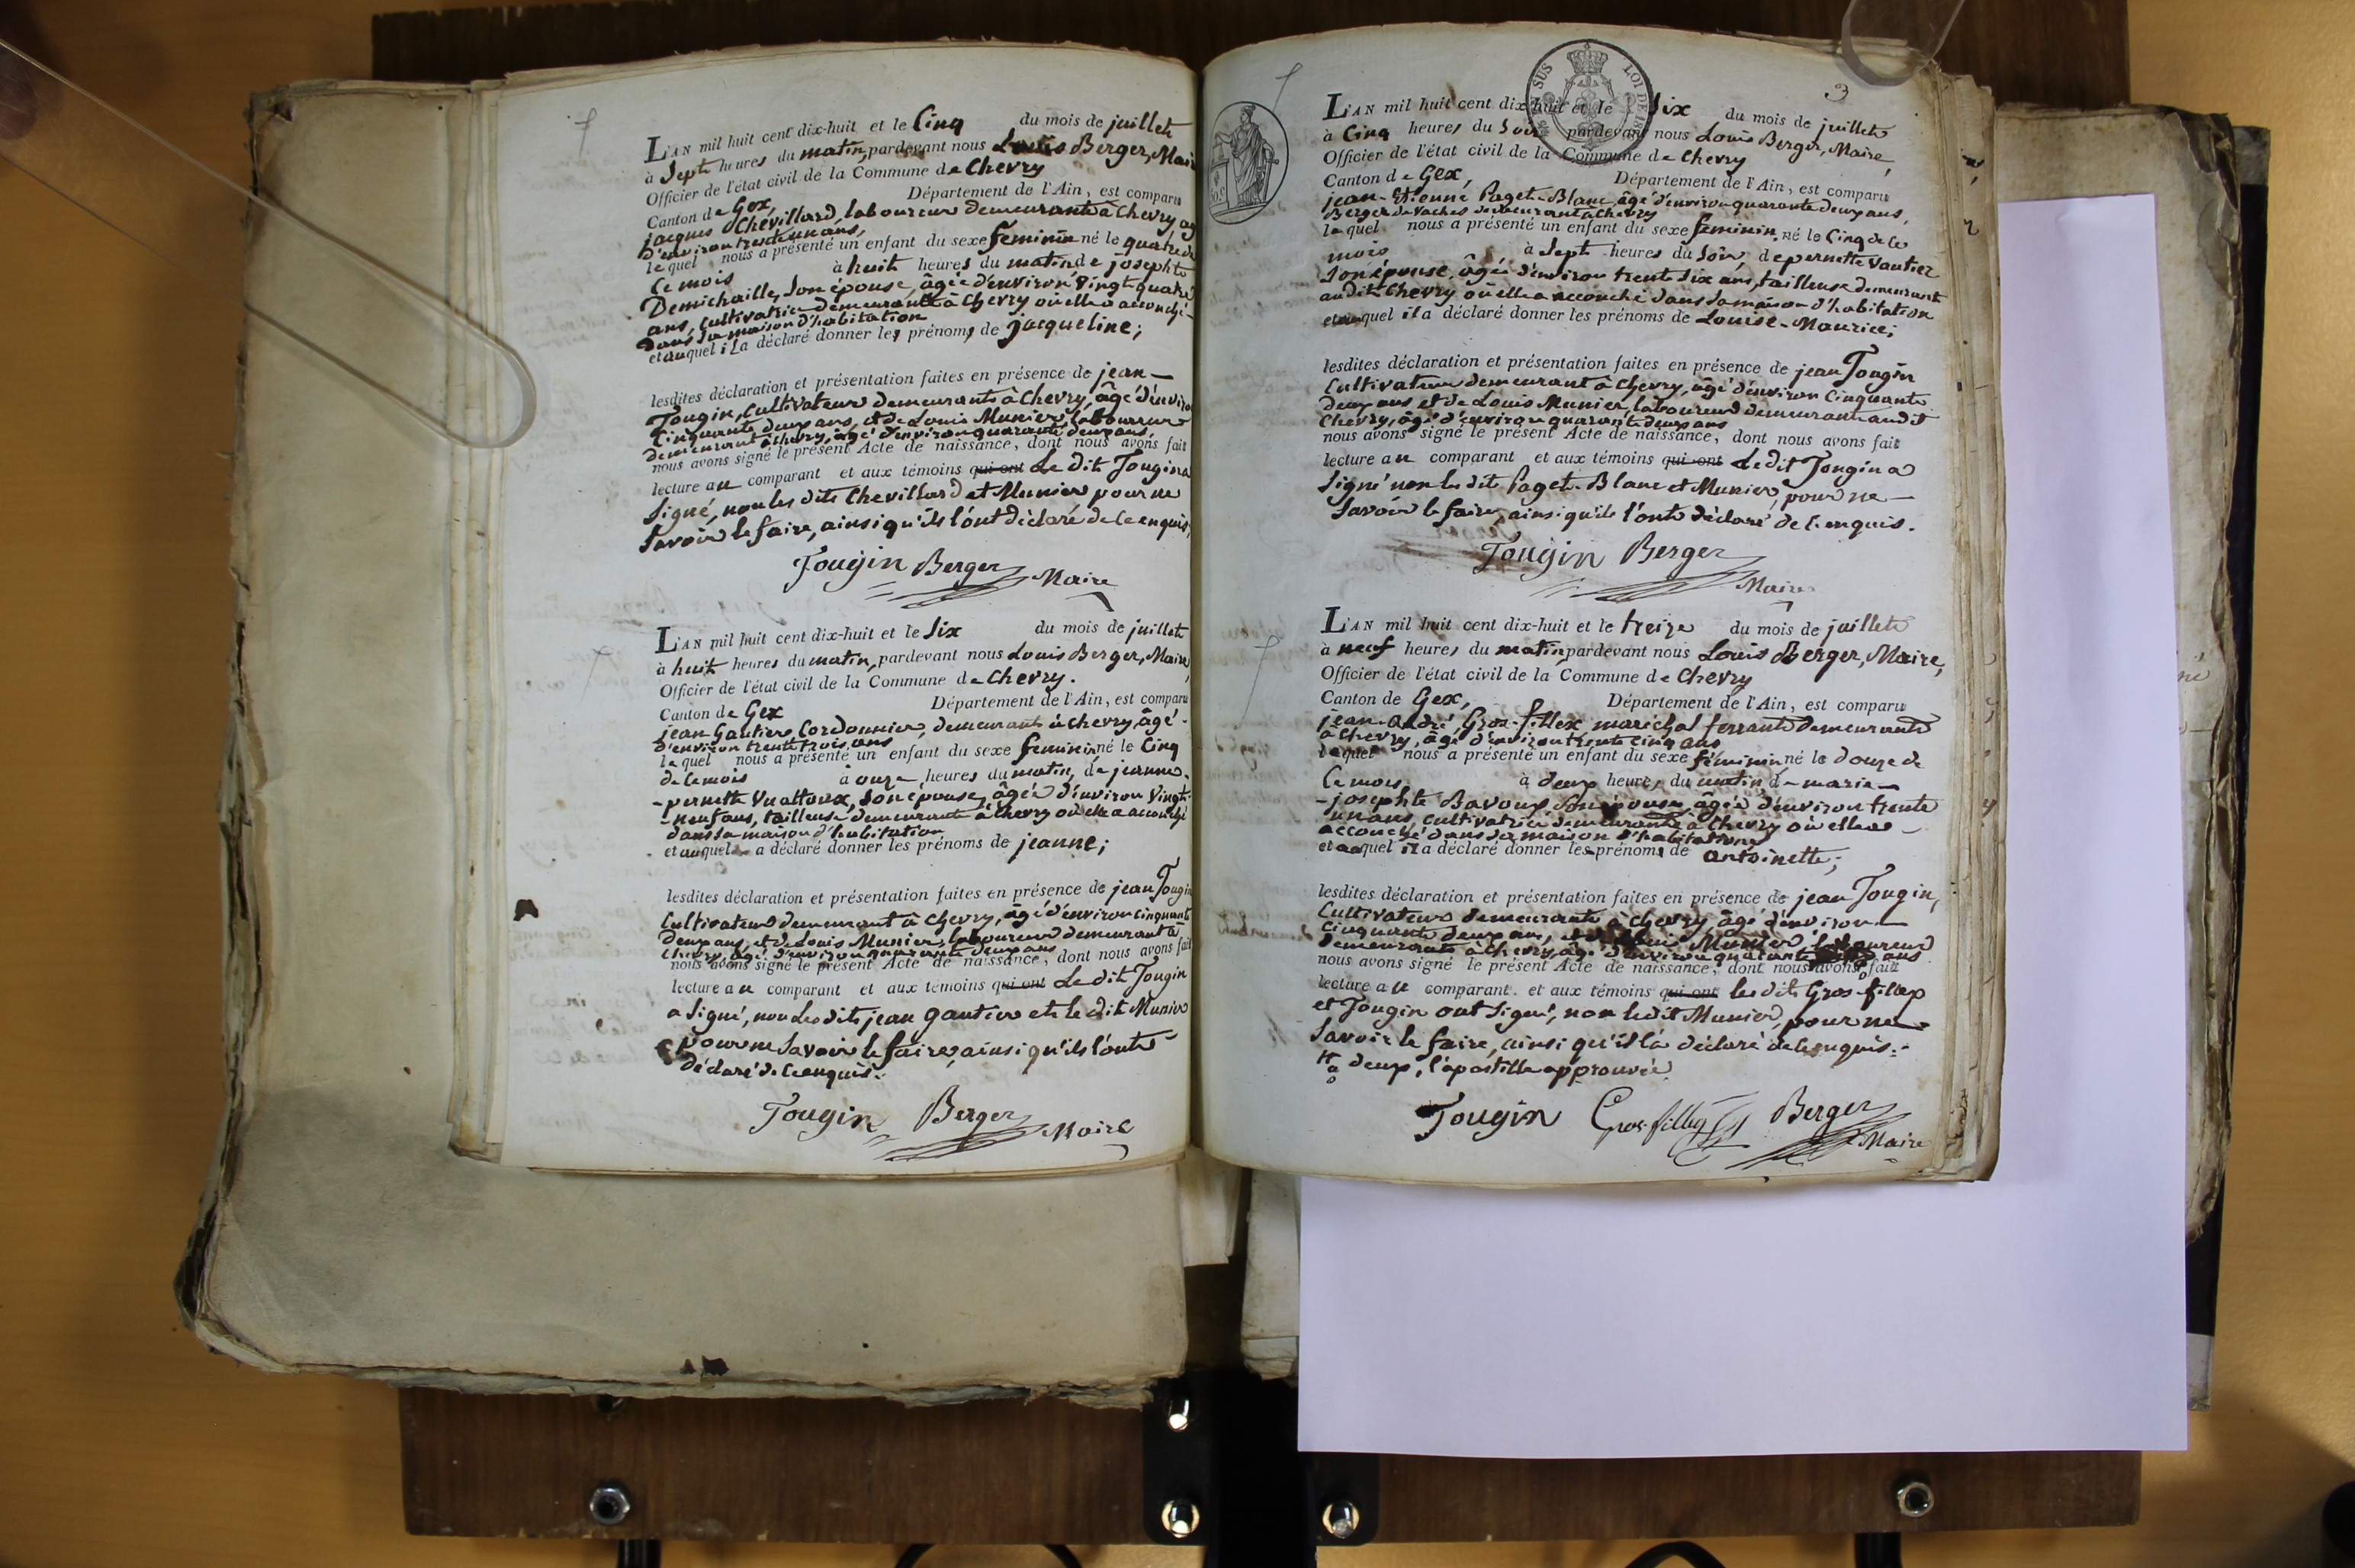 L'AN mil huit cent dix-huit et le Cinq du mois de juillet
à Sept heures du matin, pardevant nous Louis Berger, Mair
Officier de l'état civil de la Commune de Chevry
Canton de Gex, Département de l'Ain, est comparu
jacques Chevillard, laboureur demeurant à Chevry ag
d'environ trente un ans,
lequel nous a présenté un enfant du sexe feminin né le quatre de
Ce mois à huit heures du matin de josephte
Demichaille, Son épouse, âgée d'environ Vingt quatre
ans, Cultivatrice demeurante à Chevry où elle a accouché
dans Sa maison d'habitation
et auquel il a déclaré donner les prénoms de jacqueline;
lesdites déclaration et présentation faites en présence de jean
Tougin, Cultivateur demeurant à Chevry, âgé d'enviro
Cinquante deux ans, et de Louis Munier, laboureur
demeurant à Chevry, âgé d'environ quarante deux ans,
nous avons signé le présent Acte de naissance, dont nous avons fait
lecture au comparant et aux témoins qui ont Le dit Tougin a
Signé, non les dits Chevillard et Munier pour ne
Savoir le faire, ainsi qu'ils l'ont déclaré de Ce enquis,
Tougin Berger Maire
L'AN mil huit cent dix-huit et le Six du mois de juillet
à huit heures du matin, pardevant nous Louis Berger, Maire,
Officier de l'état civil de la Commune de Chevry.
Canton de Gex Département de l'Ain, est comparu
jean Gautier, Cordonnier, demeurant à Chevry, âgé
d'environ trente trois ans
lequel nous a présenté un enfant du sexe feminin né le Cinq
de Ce mois à onze heures du matin, de jeanne-
-pernette Vuattoux, Son épouse, âgée d'environ Vingt-
-neuf ans, tailleuse demeurante à Chevry où elle a accouché
dans Sa maison d'habitation
et auquel a déclaré donner les prénoms de jeanne;
lesdites déclaration et présentation faites en présence de jean Tougin
Cultivateur demeurant à Chevry, âgé d'environ Cinquante
deux ans, et de Louis Munier, laboureur demeurant à
Chevry, âgé d'environ quarante deux ans
nous avons signé le présent Acte de naissance, dont nous avons fait
lecture au comparant et aux témoins qui ont Le dit Tougin
a Signé, non Les dits jean Gautier et le dit Munier
pour ne Savoir le faire, ainsi qu'ils l'ont
déclaré de Ce enquis.
Tougin Berger Maire
3
SUS LOI DE 18
L'AN mil huit cent dix-huit et le Six du mois de juillet
à Cinq heures du Soir pardevant nous Louis Berger, Maire,
Officier de l'état civil de la Commune de Chevry
Canton de Gex, Département de l'Ain, est comparu
jean-Etienne Paget-Blanc, âgé d'environ quarante deux ans,
Berger de Vaches demeurant à Chevry
lequel nous a présenté un enfant du sexe feminin, né le Cinq de Ce
mois à Sept heures du Soir, de pernette Vautier
Son épouse, âgée d'environ trente Six ans, tailleuse demeurant
au dit Chevry où elle a accouché dans Sa maison d'habitation
et auquel il a déclaré donner les prénoms de Louise-Maurice;
lesdites déclaration et présentation faites en présence de jean Tougin
Cultivateur demeurant à Chevry, âgé d'environ Cinquante
deux ans et de Louis Munier, laboureur demeurant au dit
Chevry, âgé d'environ quarante deux ans
nous avons signé le présent Acte de naissance, dont nous avons fait
lecture au comparant et aux témoins qui ont Le dit Tougin a
Signé non les dits Paget-Blanc et Munier, pour ne
Savoir le faire, ainsi qu'ils l'ont déclaré de Ce enquis.
Tougin Berger Maire
L'AN mil huit cent dix-huit et le treize du mois de juillet
à neuf heures du matin pardevant nous Louis Berger, Maire,
Officier de l'état civil de la Commune de Chevry
Canton de Gex, Département de l'Ain, est comparu
jean-andré Gros-fillex maréchal ferrant demeurant
à Chevry, âgé d'environ trente Cinq ans
lequel nous a présenté un enfant du sexe féminin né le douze de
Ce mois à deux heures du matin de marie-
-josephte Bavoux Son épouse, âgée d'environ trente
un ans, Cultivatrice demeurante à Chevry où elle a
accouché dans Sa maison d'habitation
et auquel il a déclaré donner les prénoms de antoinette;
lesdites déclaration et présentation faites en présence de jean Tougin,
Cultivateur demeurant à Chevry, âgé d'environ
Cinquante deux ans, et de Louis Munier, laboureur
demeurant à Chevry, âgé d'environ quarante ans
nous avons signé le présent Acte de naissance, dont nous avons fait
lecture au comparant. et aux témoins qui ont les dits Gros-fillex
et Tougin ont Signé, non le dit Munier, pour ne
Savoir le faire, ainsi qu'il l'a déclaré de Ce enquis.
deux, l'apostille approuvée
Tougin Gros-fillex Berger Maire